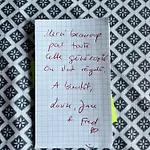 Merci beaucoup
pour toute
cette générosité
On s'est régalé
A bientôt,
& Fred